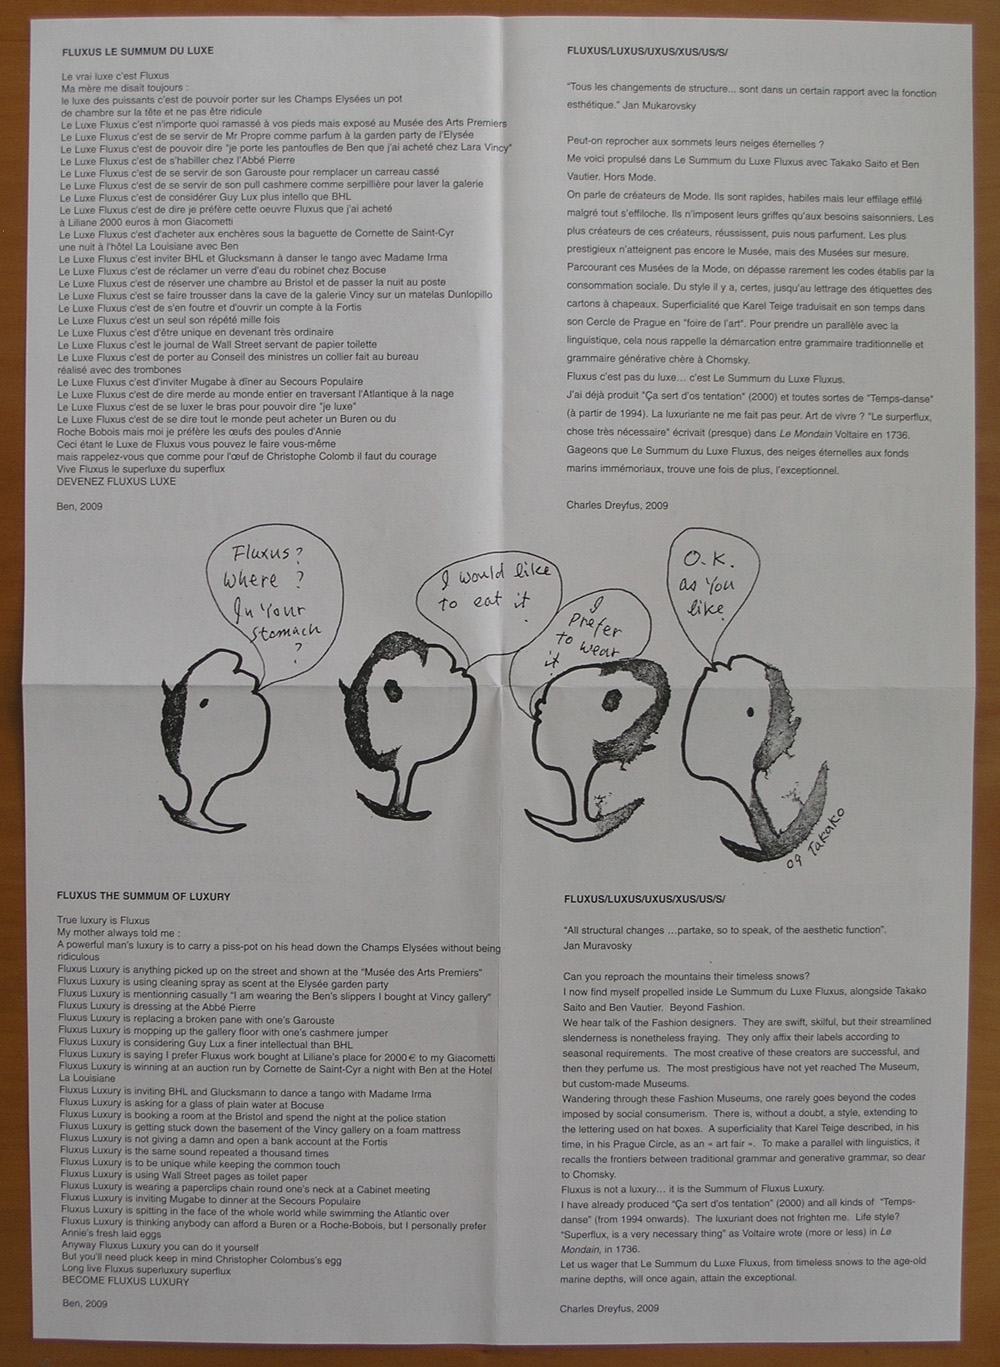 FLUXUS LE SUMMUM DU LUXE
Le vrai luxe c'est Fluxus
Ma mère me disait toujours :
le luxe des puissants c'est de pouvoir porter sur les Champs Elysées un pot
de chambre sur la tête et ne pas être ridicule
Le Luxe Fluxus c'est n'importe quoi ramassé à vos pieds mais exposé au Musée des Arts Premiers
Le Luxe Fluxus c'est de se servir de Mr Propre comme parfum à la garden party de l'Elysée
Le Luxe Fluxus c'est de pouvoir dire "je porte les pantoufles de Ben que j'ai acheté chez Lara Vincy"
Le Luxe Fluxus c'est de s'habiller chez l'Abbé Pierre
Le Luxe Fluxus c'est de se servir de son Garouste pour remplacer un carreau cassé
Le Luxe Fluxus c'est de se servir de son pull cashmere comme serpillière pour laver la galerie
Le Luxe Fluxus c'est de considérer Guy Lux plus intello que BHL
Le Luxe Fluxus c'est de dire je préfère cette oeuvre Fluxus que j'ai acheté
à Liliane 2000 euros à mon Giacometti
Le Luxe Fluxus c'est d'acheter aux enchères sous la baguette de Cornette de Saint-Cyr
une nuit à l'hôtel La Louisiane avec Ben
Le Luxe Fluxus c'est inviter BHL et Glucksmann à danser le tango avec Madame Irma
Le Luxe Fluxus c'est de réclamer un verre d'eau du robinet chez Bocuse
Le Luxe Fluxus c'est de réserver une chambre au Bristol et de passer la nuit au poste
Le Luxe Fluxus c'est se faire trousser dans la cave de la galerie Vincy sur un matelas Dunlopillo
Le Luxe Fluxus c'est de s'en foutre et d'ouvrir un compte à la Fortis
Le Luxe Fluxus c'est un seul son répété mille fois
Le Luxe Fluxus c'est d'être unique en devenant très ordinaire
Le Luxe Fluxus c'est le journal de Wall Street servant de papier toilette
Le Luxe Fluxus c'est de porter au Conseil des ministres un collier fait au bureau
réalisé avec des trombones
Le Luxe Fluxus c'est d'inviter Mugabe à dîner au Secours Populaire
Le Luxe Fluxus c'est de dire merde au monde entier en traversant l'Atlantique à la nage
Le Luxe Fluxus c'est de se luxer le bras pour pouvoir dire "je luxe"
Le Luxe Fluxus c'est de se dire tout le monde peut acheter un Buren ou du
Roche Bobois mais moi je préfère les œufs des poules d'Annie
Ceci étant le Luxe de Fluxus vous pouvez le faire vous-même
mais rappelez-vous que comme pour l'œuf de Christophe Colomb il faut du courage
Vive Fluxus le superluxe du superflux
DEVENEZ FLUXUS LUXE
Ben, 2009
FLUXUS/LUXUS/UXUS/XUS/US/S/
"Tous les changements de structure... sont dans un certain rapport avec la fonction
esthétique." Jan Mukarovsky
Peut-on reprocher aux sommets leurs neiges éternelles ?
Me voici propulsé dans Le Summum du Luxe Fluxus avec Takako Saito et Ben
Vautier. Hors Mode.
On parle de créateurs de Mode. Ils sont rapides, habiles mais leur effilage effilé
malgré tout s'effiloche. Ils n'imposent leurs griffes qu'aux besoins saisonniers. Les
plus créateurs de ces créateurs, réussissent, puis nous parfument. Les plus
prestigieux n'atteignent pas encore le Musée, mais des Musées sur mesure.
Parcourant ces Musées de la Mode, on dépasse rarement les codes établis par la
consommation sociale. Du style il y a, certes, jusqu'au lettrage des étiquettes des
cartons à chapeaux. Superficialité que Karel Teige traduisait en son temps dans
son Cercle de Prague en "foire de l'art". Pour prendre un parallèle avec la
linguistique, cela nous rappelle la démarcation entre grammaire traditionnelle et
grammaire générative chère à Chomsky.
Fluxus c'est pas du luxe... c'est Le Summum du Luxe Fluxus.
J'ai déjà produit "Ça sert d'os tentation" (2000) et toutes sortes de "Temps-danse"
(à partir de 1994). La luxuriante ne me fait pas peur. Art de vivre ? "Le surperflux,
chose très nécessaire" écrivait (presque) dans Le Mondain Voltaire en 1736.
Gageons que Le Summum du Luxe Fluxus, des neiges éternelles aux fonds
marins immémoriaux, trouve une fois de plus, l'exceptionnel.
Charles Dreyfus, 2009
Fluxus?
Where ?
In Your
stomach
?
I would like
to eat it
.
I
Prefer
to wear
it
O.K.
as You
like
09 Takako
FLUXUS THE SUMMUM OF LUXURY
True luxury is Fluxus
My mother always told me :
A powerful man's luxury is to carry a piss-pot on his head down the Champs Elysées without being
ridiculous
Fluxus Luxury is anything picked up on the street and shown at the "Musée des Arts Premiers"
Fluxus Luxury is using cleaning spray as scent at the Elysée garden party
Fluxus Luxury is mentionning casually "I am wearing the Ben's slippers I bought at Vincy gallery"
Fluxus Luxury is dressing at the Abbé Pierre
Fluxus Luxury is replacing a broken pane with one's Garouste
Fluxus Luxury is mopping up the gallery floor with one's cashmere jumper
Fluxus Luxury is considering Guy Lux a finer intellectual than BHL
Fluxus Luxury is saying I prefer Fluxus work bought at Liliane's place for 2000 € to my Giacometti
Fluxus Luxury is winning at an auction run by Cornette de Saint-Cyr a night with Ben at the Hotel
La Louisiane
Fluxus Luxury is inviting BHL and Glucksmann to dance a tango with Madame Irma
Fluxus Luxury is asking for a glass of plain water at Bocuse
Fluxus Luxury is booking a room at the Bristol and spend the night at the police station
Fluxus Luxury is getting stuck down the basement of the Vincy gallery on a foam mattress
Fluxus Luxury is not giving a damn and open a bank account at the Fortis
Fluxus Luxury is the same sound repeated a thousand times
Fluxus Luxury is to be unique while keeping the common touch
Fluxus Luxury is using Wall Street pages as toilet paper
Fluxus Luxury is wearing a paperclips chain round one's neck at a Cabinet meeting
Fluxus Luxury is inviting Mugabe to dinner at the Secours Populaire
Fluxus Luxury is spitting in the face of the whole world while swimming the Atlantic over
Fluxus Luxury is thinking anybody can afford a Buren or a Roche-Bobois, but I personally prefer
Annie's fresh laid eggs
Anyway Fluxus Luxury you can do it yourself
But you'll need pluck keep in mind Christopher Colombus's egg
Long live Fluxus superluxury superflux
BECOME FLUXUS LUXURY
Ben, 2009
FLUXUS/LUXUS/UXUS/XUS/US/S/
"All structural changes ...partake, so to speak, of the aesthetic function".
Jan Muravosky
Can you reproach the mountains their timeless snows?
I now find myself propelled inside Le Summum du Luxe Fluxus, alongside Takako
Saito and Ben Vautier. Beyond Fashion.
We hear talk of the Fashion designers. They are swift, skilful, but their streamlined
slenderness is nonetheless fraying. They only affix their labels according to
seasonal requirements. The most creative of these creators are successful, and
then they perfume us. The most prestigious have not yet reached The Museum,
but custom-made Museums.
Wandering through these Fashion Museums, one rarely goes beyond the codes
imposed by social consumerism. There is, without a doubt, a style, extending to
the lettering used on hat boxes. A superficiality that Karel Teige described, in his
time, in his Prague Circle, as an « art fair ». To make a parallel with linguistics, it
recalls the frontiers between traditional grammar and generative grammar, so dear
to Chomsky.
Fluxus is not a luxury... it is the Summum of Fluxus Luxury.
I have already produced "Ça sert d'os tentation" (2000) and all kinds of "Temps-
danse" (from 1994 onwards). The luxuriant does not frighten me. Life style?
"Superflux, is a very necessary thing" as Voltaire wrote (more or less) in Le
Mondain, in 1736.
Let us wager that Le Summum du Luxe Fluxus, from timeless snows to the age-old
marine depths, will once again, attain the exceptional.
Charles Dreyfus, 2009